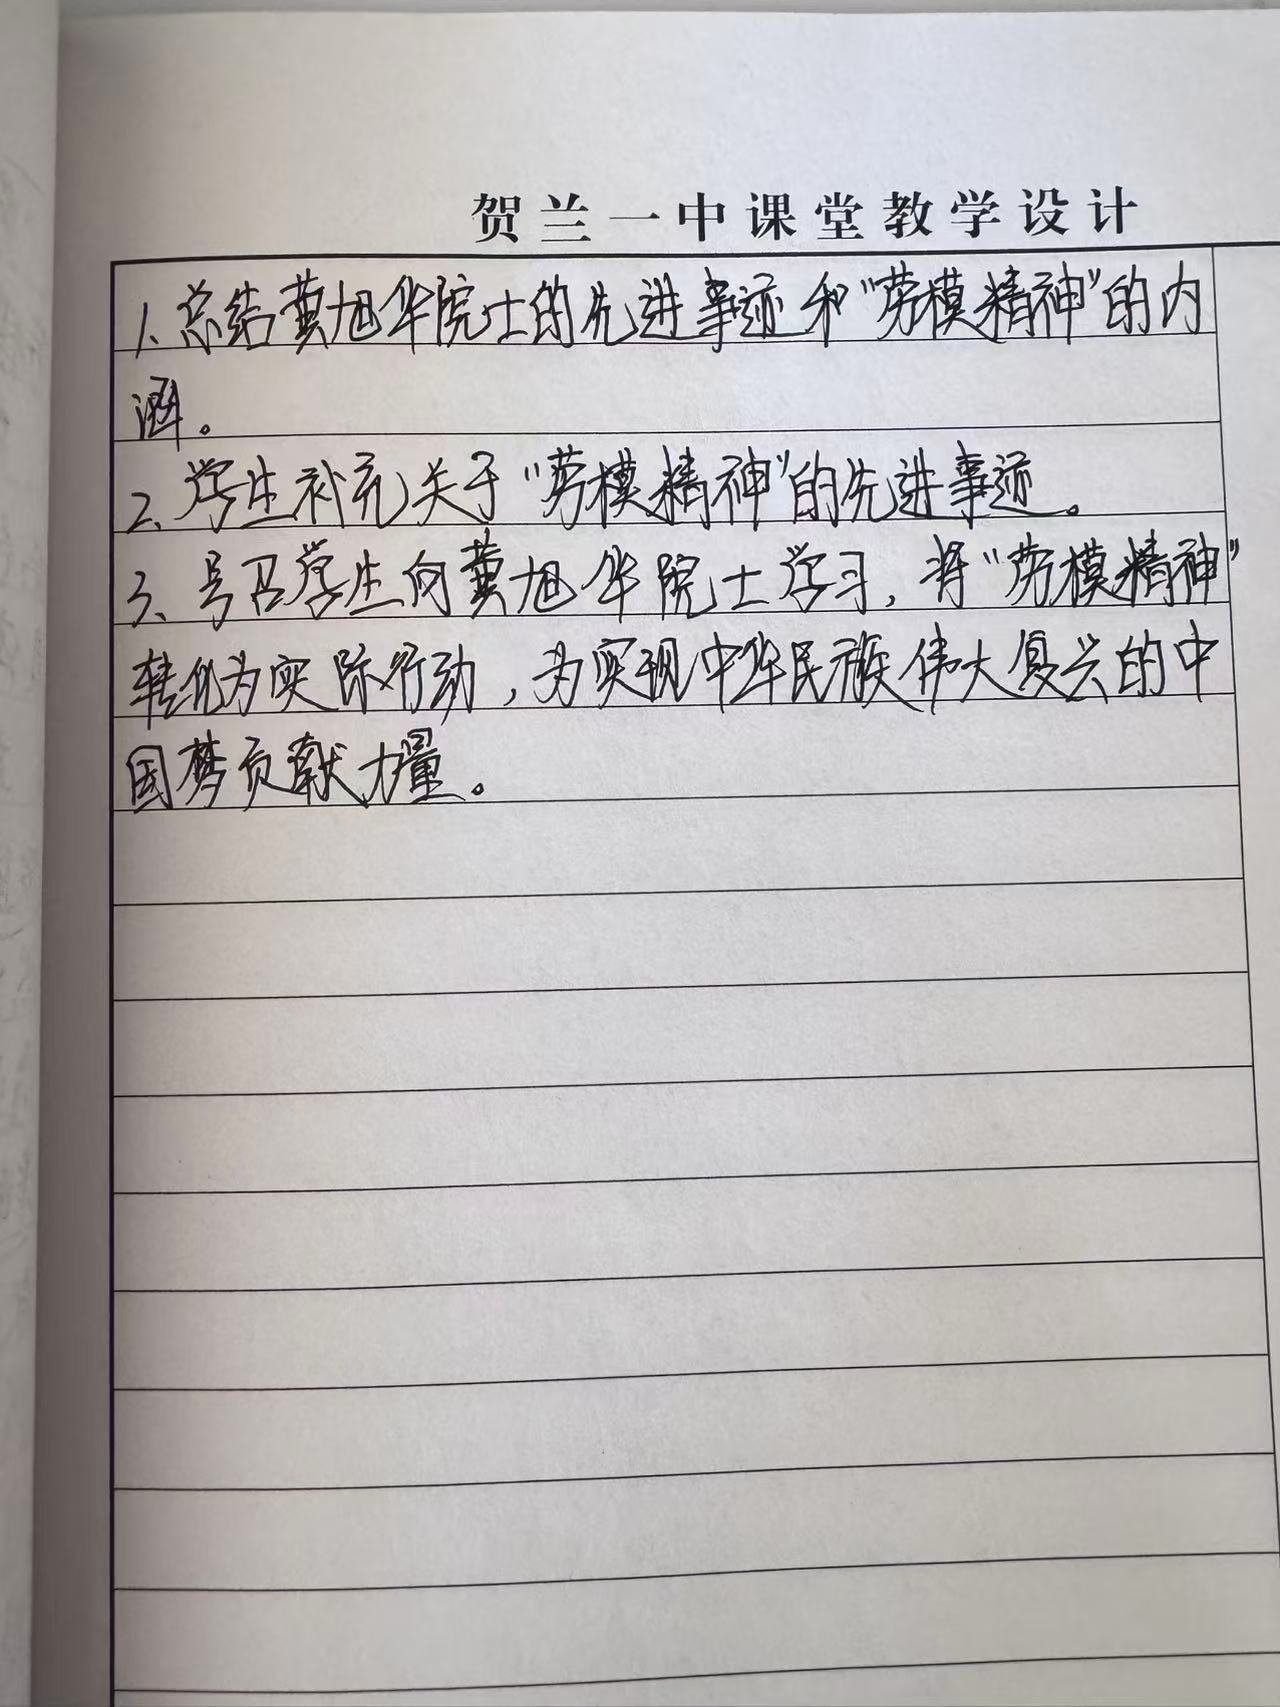 贺兰一中课堂教学设计
1、总结黄旭华院士的先进事迹和“劳模精神”的内
涵。
2、学生补充关于“劳模精神”的先进事迹。
3、号召学生向黄旭华院士学习,将“劳模精神”
转化为实际行动,为实现中华民族伟大复兴的中
国梦贡献力量。